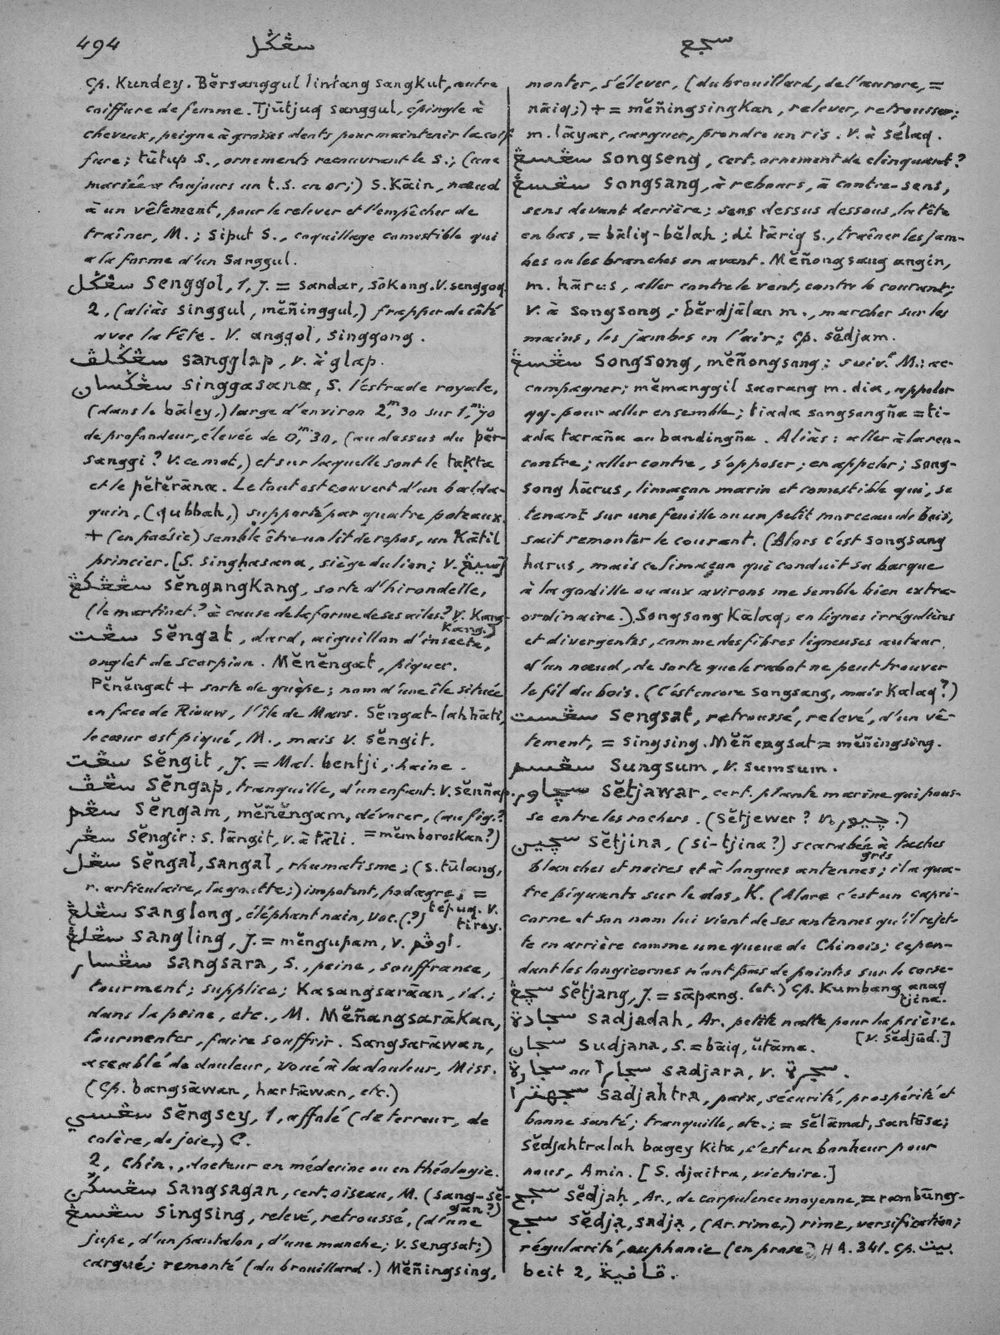 494 سڠݢل سجع
Cp. Kundey. Bĕrsanggul lintang sangkut, autre
coiffure de femme. Tjūtjuq sanggul, épingle à
cheveux, peigne à grosses dents pour maintenir la coif-
fure; tūtup S., ornements recouvrant le S.; (une
mariée a toujours un t.S. en or;) S. Kāin, nœud
à un vêtement, pour le relever et l'empêcher de
traîner, M.; Siput S., coquillage comestible qui
a la forme d'un Sanggul.
سڠݢل senggol, 1, J. = sandar, sōkong. V. senggoq
2, (aliàs singgul, mĕñinggul,) frapper de côté
avec la tête. V. anggol, singgong.
سڠݢلڤ sangglap, v. à glap.
سڠݢسان singgasana, S. l'estrade royale,
(dans le bāley,) large d'environ 2,m30 sur 1,m70
de profondeur, élevée de 0,m30, (au dessus du pĕr-
sanggi? V. ce mot,) et sur laquelle sont le takta
et le pĕtĕrāna. Le tout est couvert d'un balda-
quin, (qubbah,) supporté par quatre poteaux.
+ (en poésie) semble être un lit de repos, un Kātil
princier. [S. singhasana, siège du lion; V.
سڠڠكڠ sĕngangkang, sorte d'hirondelle,
(le martinet? à cause de la forme de ses ailes? V. Kang-
kang.]
سڠت sĕngat, dard, aiguillon d'insecte,
onglet de scorpion. Mĕnĕngat, piquer.
Pĕnĕngat + sorte de guêpe; nom d'une île située
en face de Riouw, l'île de Mars. Sĕngat-lah hāti,
le cœur est piqué, M., mais v. sĕngit.
سڠت sĕngit, J. = Mal. bentji, haine.
سڠڤ sĕngap, tranquille, d'un enfant. V. sĕnñap.
سڠم sĕngam, mĕñĕngam, dévorer, (au fig.?
= mĕmboroskan?)
سڠر sĕngir: s. lāngit, v. à tāli.
سڠل sĕngal, sangal, rhumatisme; (s. tūlang,
r. articulaire, la goutte;) impotent, podagre; =
tépuq. V. tirey.
سڠلڠ sanglong, éléphant nain, Voc. (?)
سڠلڠ sangling, J. = mĕngupam, v. اوڤم.
سڠسار sangsara, S., peine, souffrance,
tourment; supplice; Kasangsarāan, id.;
dans la peine, etc., M. Mĕñangsarākan,
tourmenter, faire souffrir. Sangsarāwan,
accablé de douleur, voué à la douleur, Miss.
(Cp. bangsāwan, hartāwan, etc.)
سڠسي sĕngsey, 1, affolé (de terreur, de
colère, de joie,) C.
2, Chin., docteur en médecine ou en théologie.
سڠسݢن sangsagan, cert. oiseau, M. (sang-sĕ-
gan?)
سڠسڠ singsing, relevé, retroussé, (d'une
jupe, d'un pantalon, d'une manche; V. sengsat;)
cargué; remonté (du brouillard.) Mĕñingsing,
monter, s'élever, (du brouillard, de l'aurore, =
nāiq;) + = mĕñingsingkan, relever, retrousser;
m. lāyar, carguer, prendre un ris. V. à sélaq.
سڠسڠ songseng, cert. ornement de clinquant?
سڠسڠ songsang, à rebours, à contre-sens,
sens devant derrière; sens dessus dessous, la tête
en bas, = bāliq-bĕlah; di tāriq s., traîner les jam-
bes ou les branches en avant. Mĕñongsang angin,
m. hārus, aller contre le vent, contre le courant;
V. à songsong; bĕrdjālan m., marcher sur les
mains, les jambes en l'air; Cp. sĕdjam.
سڠسڠ songsong, mĕñongsong: suiv.t M.: ac-
compagner; mĕmanggil saorang m. dia, appeler
qq. pour aller ensemble; tiada songsangña = ti-
ada taraña ou bandingña. Aliàs: aller à la ren-
contre; aller contre, s'opposer; en appeler; song-
song hārus, limaçon marin et comestible qui, se
tenant sur une feuille ou un petit morceau de bois,
sait remonter le courant. (Alors c'est songsang
harus, mais ce limaçon qui conduit sa barque
à la godille ou aux avirons me semble bien extra-
ordinaire.) Songsong Kālaq, en lignes irrégulières
et divergentes, comme des fibres ligneuses autour
d'un nœud, de sorte que le rabot ne peut trouver
le fil du bois. (C'est encore songsang, mais Kalaq?)
سڠست sengsat, retroussé, relevé, d'un vê-
tement, = singsing. Mĕñengsat = mĕñingsing.
سڠسم sungsum, V. sumsum.
سچاور sĕtjawar, cert. plante marine qui pous-
se entre les rochers. (Sĕtjewer? V. چيور.)
سچين sĕtjina, (si-tjina?) scarabée gris à taches
blanches et noires et à longues antennes; il a qua-
tre piquants sur le dos, K. (Alors c'est un capri-
corne et son nom lui vient de ses antennes qu'il rejet-
te en arrière comme une queue de Chinois; cepen-
dant les longicornes n'ont pas de points sur le corse-
let.) Cp. Kumbang anaq
tjina.
سچڠ sĕtjang, J. = sāpang.
سجادة sadjadah, Ar. petite natte pour la prière.
[V. sĕdjūd.]
سجان sudjana, S. = bāiq, ŭtāma.
سجارة ou سجارا sadjara, v. سجرة.
سجهترا sadjahtra, paix, sécurité, prospérité et
bonne santé; tranquille, etc.; = sĕlāmat, santōsa;
Sĕdjahtralah bagey Kita, c'est un bonheur pour
nous, Amin. [S. djaitra, victoire.]
سجح sĕdjaḥ, Ar., de corpulence moyenne, = rambūng.
سجع sĕdja, sadja, (Ar. rime,) rime, versification;
régularité, euphonie (en prose,) HA. 341. Cp. بيت
beit 2, قافية.